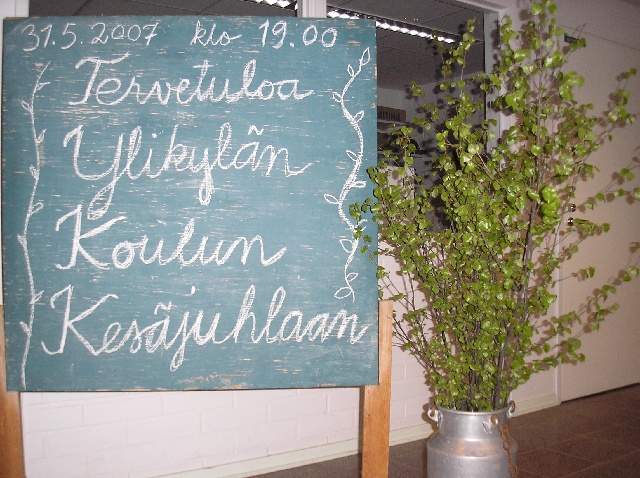 31.5.2007 klo 19.00
Tervetuloa
Ylikylän
Koulun
Kesäjuhlaan